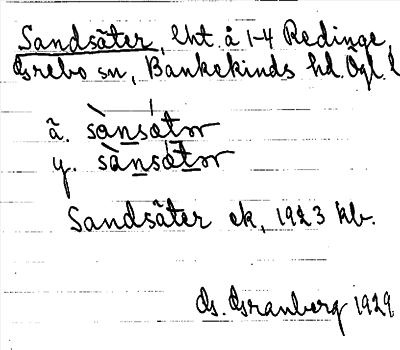 Sandsäter, lht. å 1-4 Redinge,
Grebo sn, Bankekinds hd. Ögl. l
ä. sànsátər
y. sànsátər
Sandsäter ek, 1923 kb.
G. Granberg 1929